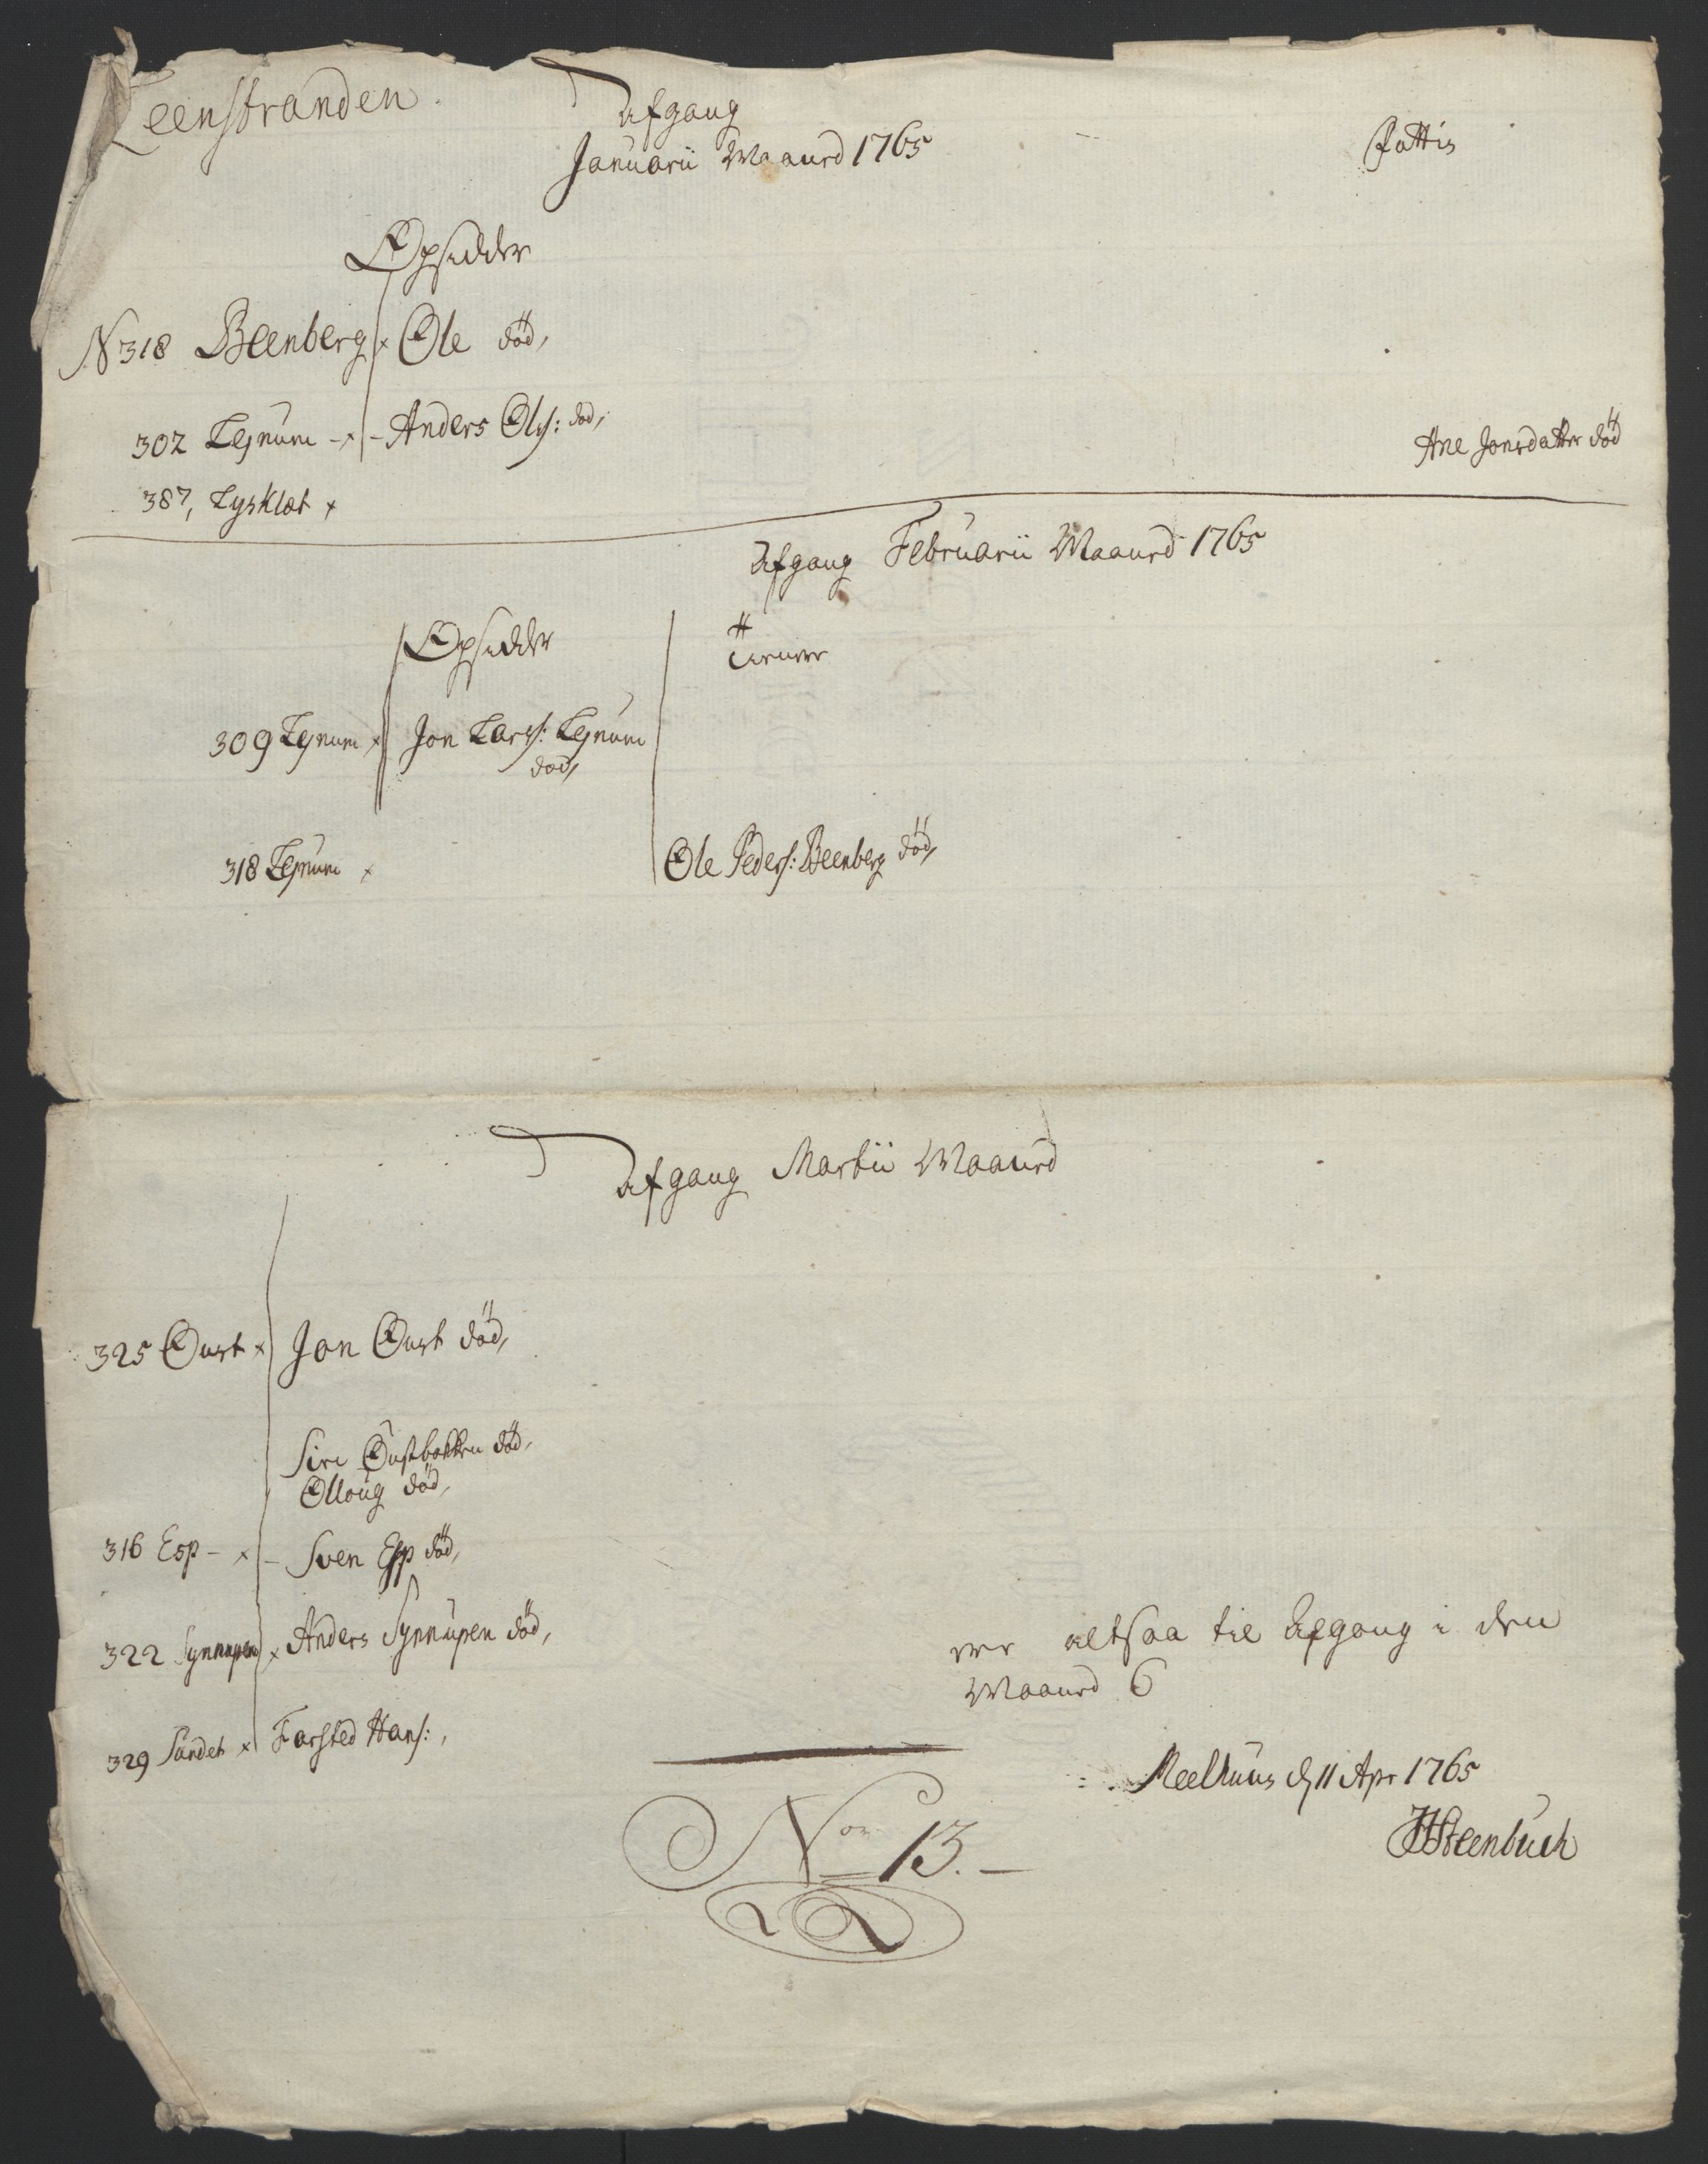 Leenstranden.
Afgang
Januarii Maaned 1765
Fattig
Opsidder
N 318 Bleenberg x Ole död,
302 Lejnum -x- Anders Ols: död,
Ane Jonsdatter död
387, Lysklæt x
Afgang Februarii Maaned 1765
Opsidder
Tienere
309 Lejnum x Jon Lars: Lejnum
död,
318 Lejnum x Ole Peders: Bleenberg död,
Afgang Martii Maaned
325 Oust x Jon Oust död,
Siri Oustbakken död,
Olloug död,
316 Esp - x - Sven Esp död,
322 Synnupen x Anders Synnupen död,
er altsaa til Afgang i den
Maaned 6
329 Sandet x Farsted Hans:,
Meelhuus d 11 Apr 1765
HSteenbuch
No 13.-